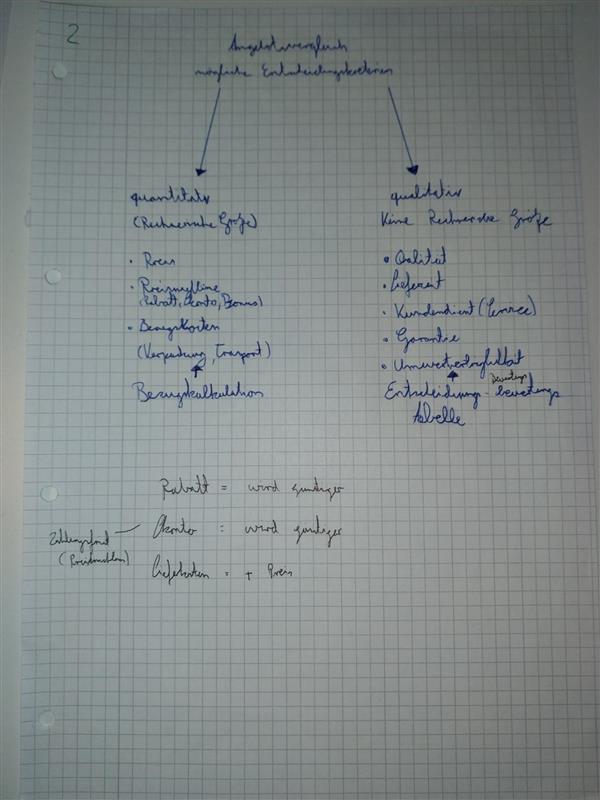 2
Angebotsvergleich
mögliche Entscheidungskriterien
quantitativ
(Rechnerische Größe)
• Preis
• Preisnachlässe
(Rabatt, Skonto, Bonus)
• Bezugskosten
(Verpackung, Transport)
Bezugskalkulation
qualitativ
Keine Rechnerische Größe
• Qalität
• Lieferzeit
• Kundendienst (Service)
• Garantie
• Umweltverträglichkeit
Bewertungs
Entscheidungs - bewertungs
tabelle
Rabatt = wird günstiger
Skonto = wird günstiger
Zahlungsfrist
(Preisnachlass)
Lieferkosten = + Preis